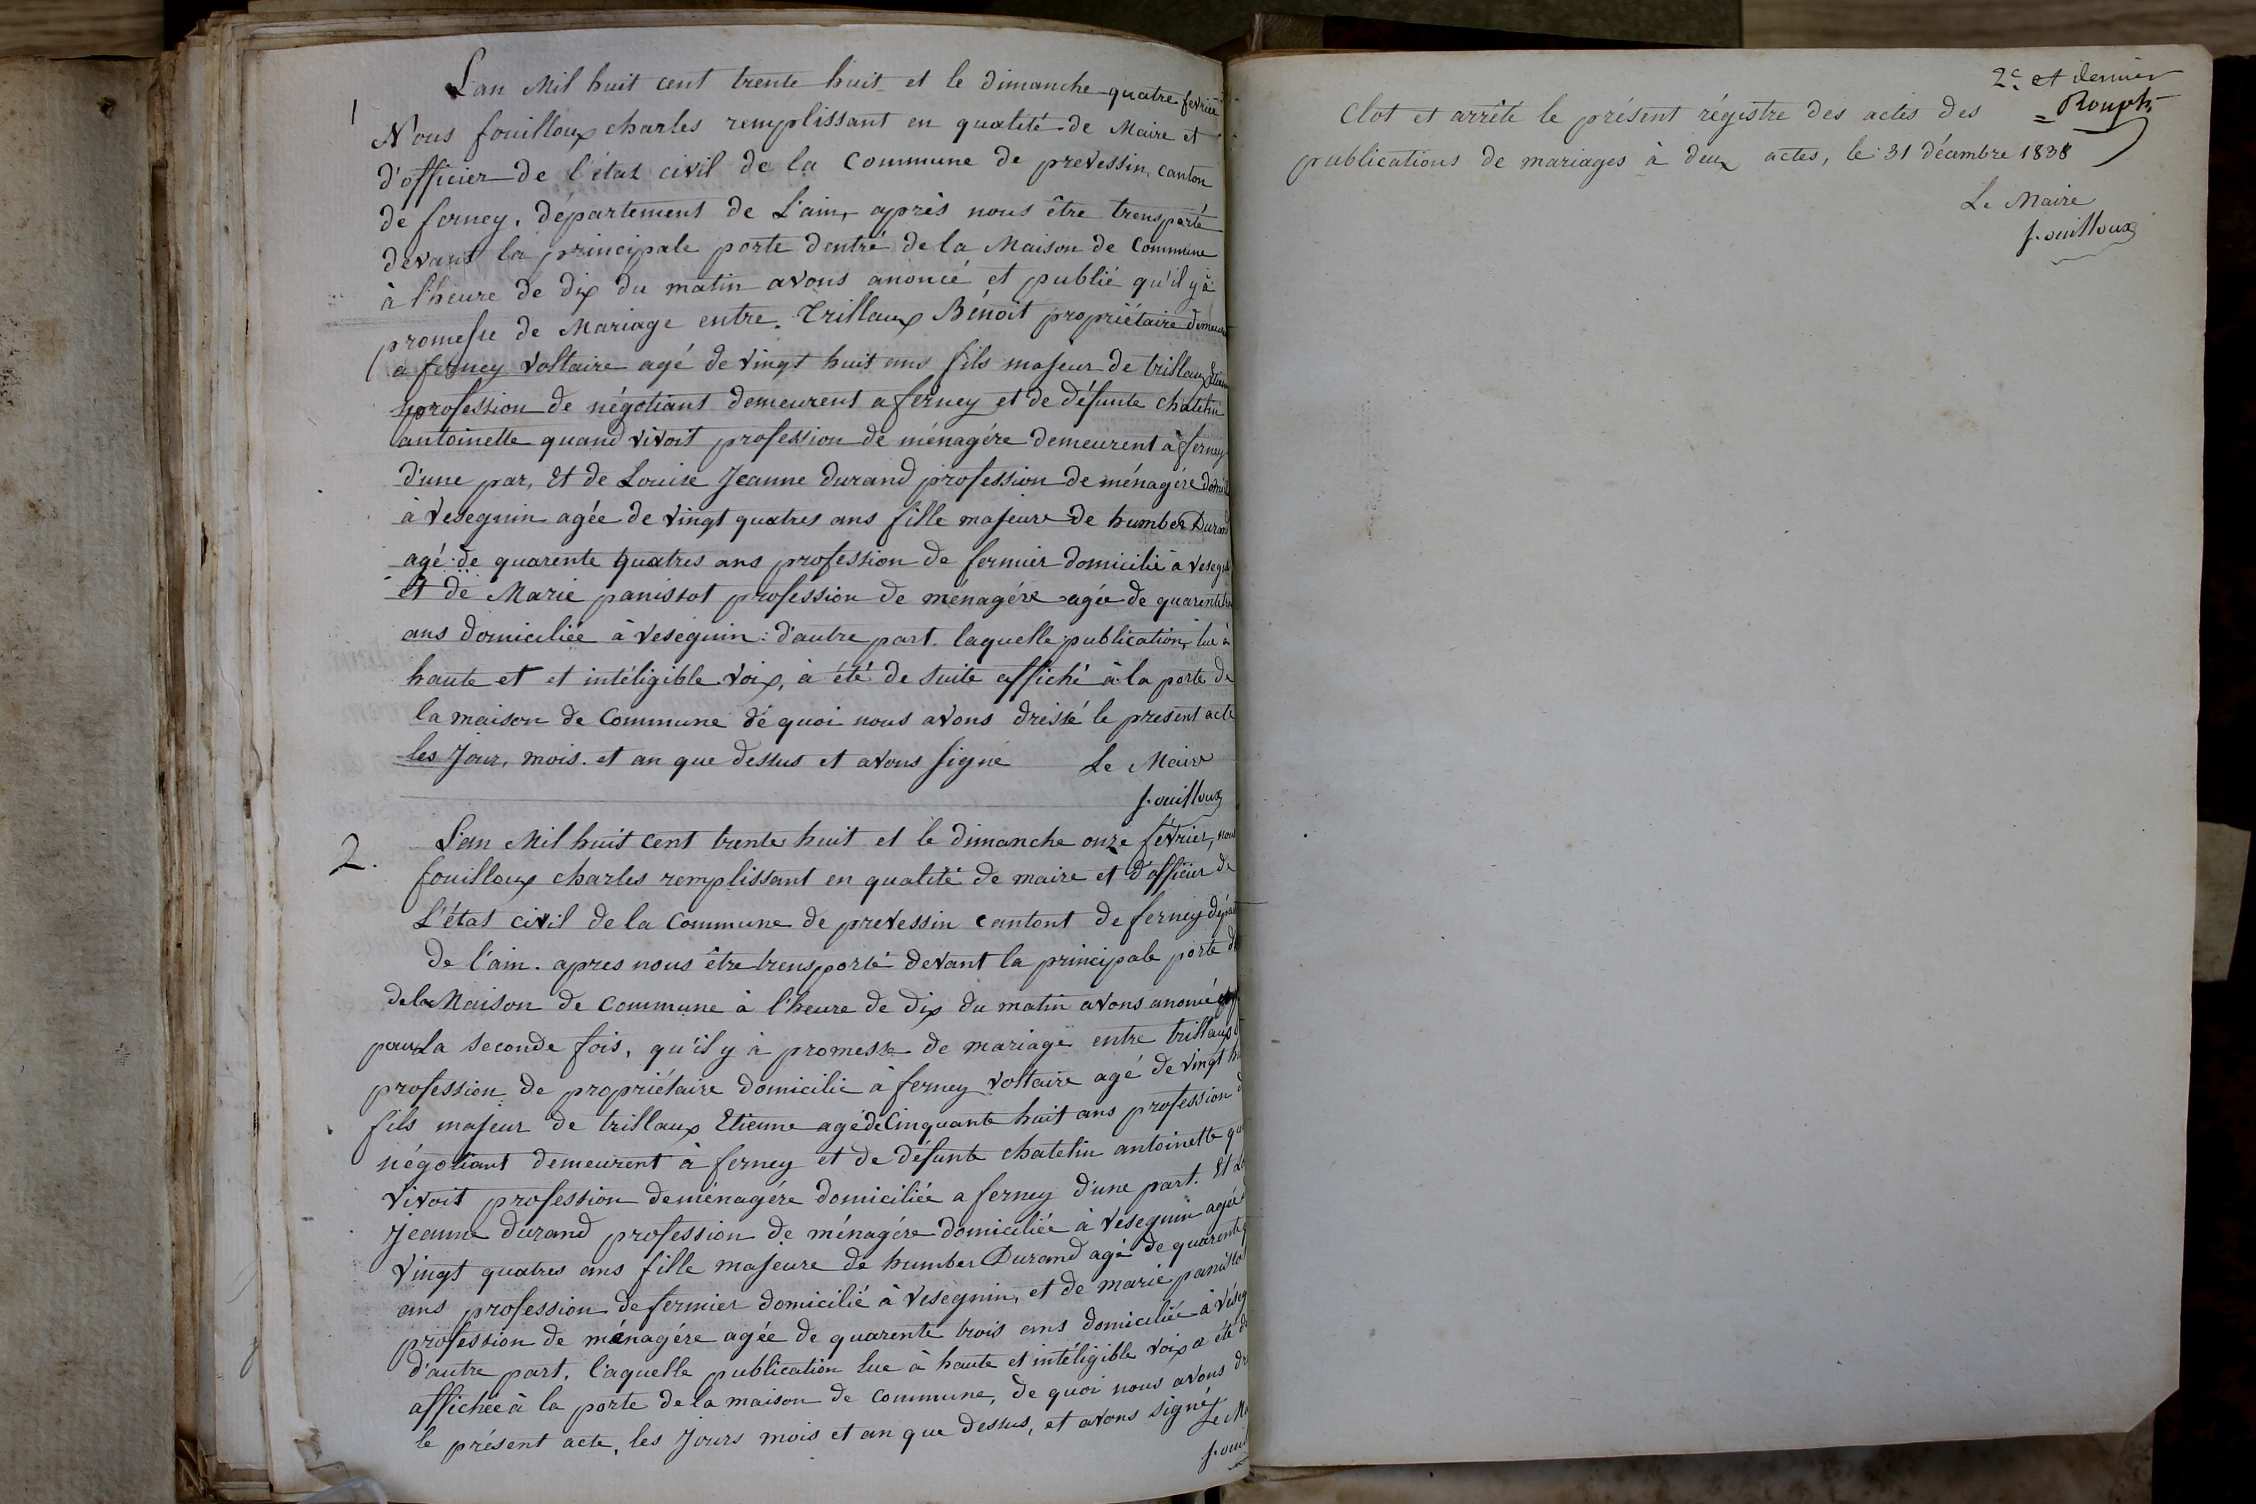 1
L'an Mil huit cent trente huit et le dimanche quatre fevrier
Nous fouilloux charles remplissant en qualité de Maire et
d'officier de l'état civil de la Commune de prevessin, canton
de ferney, département de L'ain, après nous être trensporté
devant la principale porte dentré de la Maison de Commune
à l'heure de dix du matin avons anoncé et publié qu'il y à
promesse de Mariage entre Trillaux Bénoit propriétaire
a ferney voltaire agé de vingt huit ans fils majeur de trillaux
profession de négotiant demeurent a ferney et de défunte chatelin
antoinette quand vivoit profession de ménagére demeurent à ferney
d'une par, Et de Louise Jeanne durand profession de ménagére
à veseguin agée de vingt quatres ans fille majeure de humber Durand
agé de quarente quatres ans profession de fermier domicilié à
et de Marie panissot profession de menagére agée de
ans domiciliée à veseguin : d'autre part. laquelle publication, lue à
haute et et intéligible voix, à été de suite affiché à la porte de
la maison de Commune dé quoi nous avons dréssé le present acte
les Jour, mois. et an que dessus et avons signé Le Maire
fouilloux
2.
L'an Mil huit cent trente huit et le dimanche onze février, nous
fouilloux charles remplissant en qualité de maire et d'officier de
L'état civil de la Commune de prevessin cantont de ferney
de l'ain. apres nous être trensporté devant la principale porte
de la Maison de Commune à l'heure de dix du matin avons anoncé
pour La seconde fois, qu'il y à promesse de mariage entre trillaux
profession de propriétaire domicilié à ferney voltaire agé de vingt
fils majeur de trillaux Etienne agé de Cinquante huit ans profession
négotiant demeurent à ferney et de défunte chatelin antoinette
vivoit profession de ménagére domiciliée a ferney d'une part. Et
Jeanne durand profession de ménagére domiciliée à veseguin agée
vingt quatres ans fille majeure de humber Durand agé de quarente
ans profession de fermier domicilié à veseguin, et de marie
profession de ménagére agée de quarente trois ans domiciliée à
d'autre part, l'aquelle publication lue à haute et intéligible voix a été
affichée à la porte de la maison de commune, de quoi nous avons
le présent acte, les Jours mois et an que dessus, et avons signé
2e et dernier
Clot et arrêté le présent régistre des actes des
publications de mariages à deux actes, le 31 décembre 1838
Le Maire
fouilloux